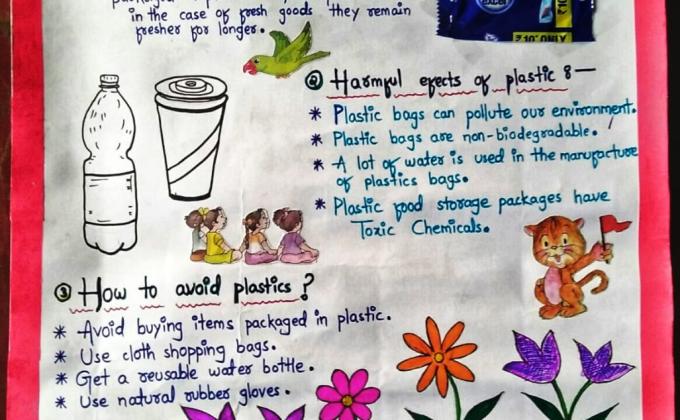 in the case of fresh goods they remain
fresher for longer.
₹10 ONLY
② Harmful efects of plastic :—
* Plastic bags can pollute our environment.
* Plastic bags are non-biodegradable.
* A lot of water is used in the manufacture
of plastics bags.
* Plastic food storage packages have
Toxic Chemicals.
③ How to avoid plastics?
* Avoid buying items packaged in plastic.
* Use cloth shopping bags.
* Get a reusable water bottle.
* Use natural rubber gloves.